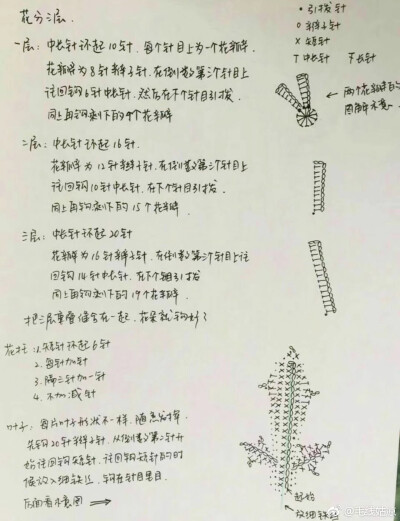 花分三层.
一层: 中长针环起10针, 每个针目上为一个花瓣.
花瓣为8针辫子针, 在倒数第三个针目上
往回钩6针中长针, 然后在下个针目引拔
同上再钩剩下的9个花瓣
二层: 中长针环起16针.
花瓣为12针辫子针, 在倒数第三个针目上
往回钩10针中长针, 在下个针目引拔
同上再钩剩下的15个花瓣
三层: 中长针环起20针
花瓣为16针辫子针, 在倒数第三个针目上往
回钩14针中长针, 在下个针目引拔
同上再钩剩下的19个花瓣
把三层重叠缝合在一起, 花朵就钩好了
花托: 1. 短针环起6针
2. 每针加针
3. 隔三针加一针
4. 不加减针
叶子: 每片叶子形状不一样, 随意发挥.
先钩20针辫子针, 从倒数第二针开
始往回钩短针, 往回钩短针的时
候放入细铁丝, 钩在针目里
后面看示意图
• 引拔针
0 辫子针
X 短针
T 中长针 下长针
两个花瓣的
图解示意
起始
放细铁丝